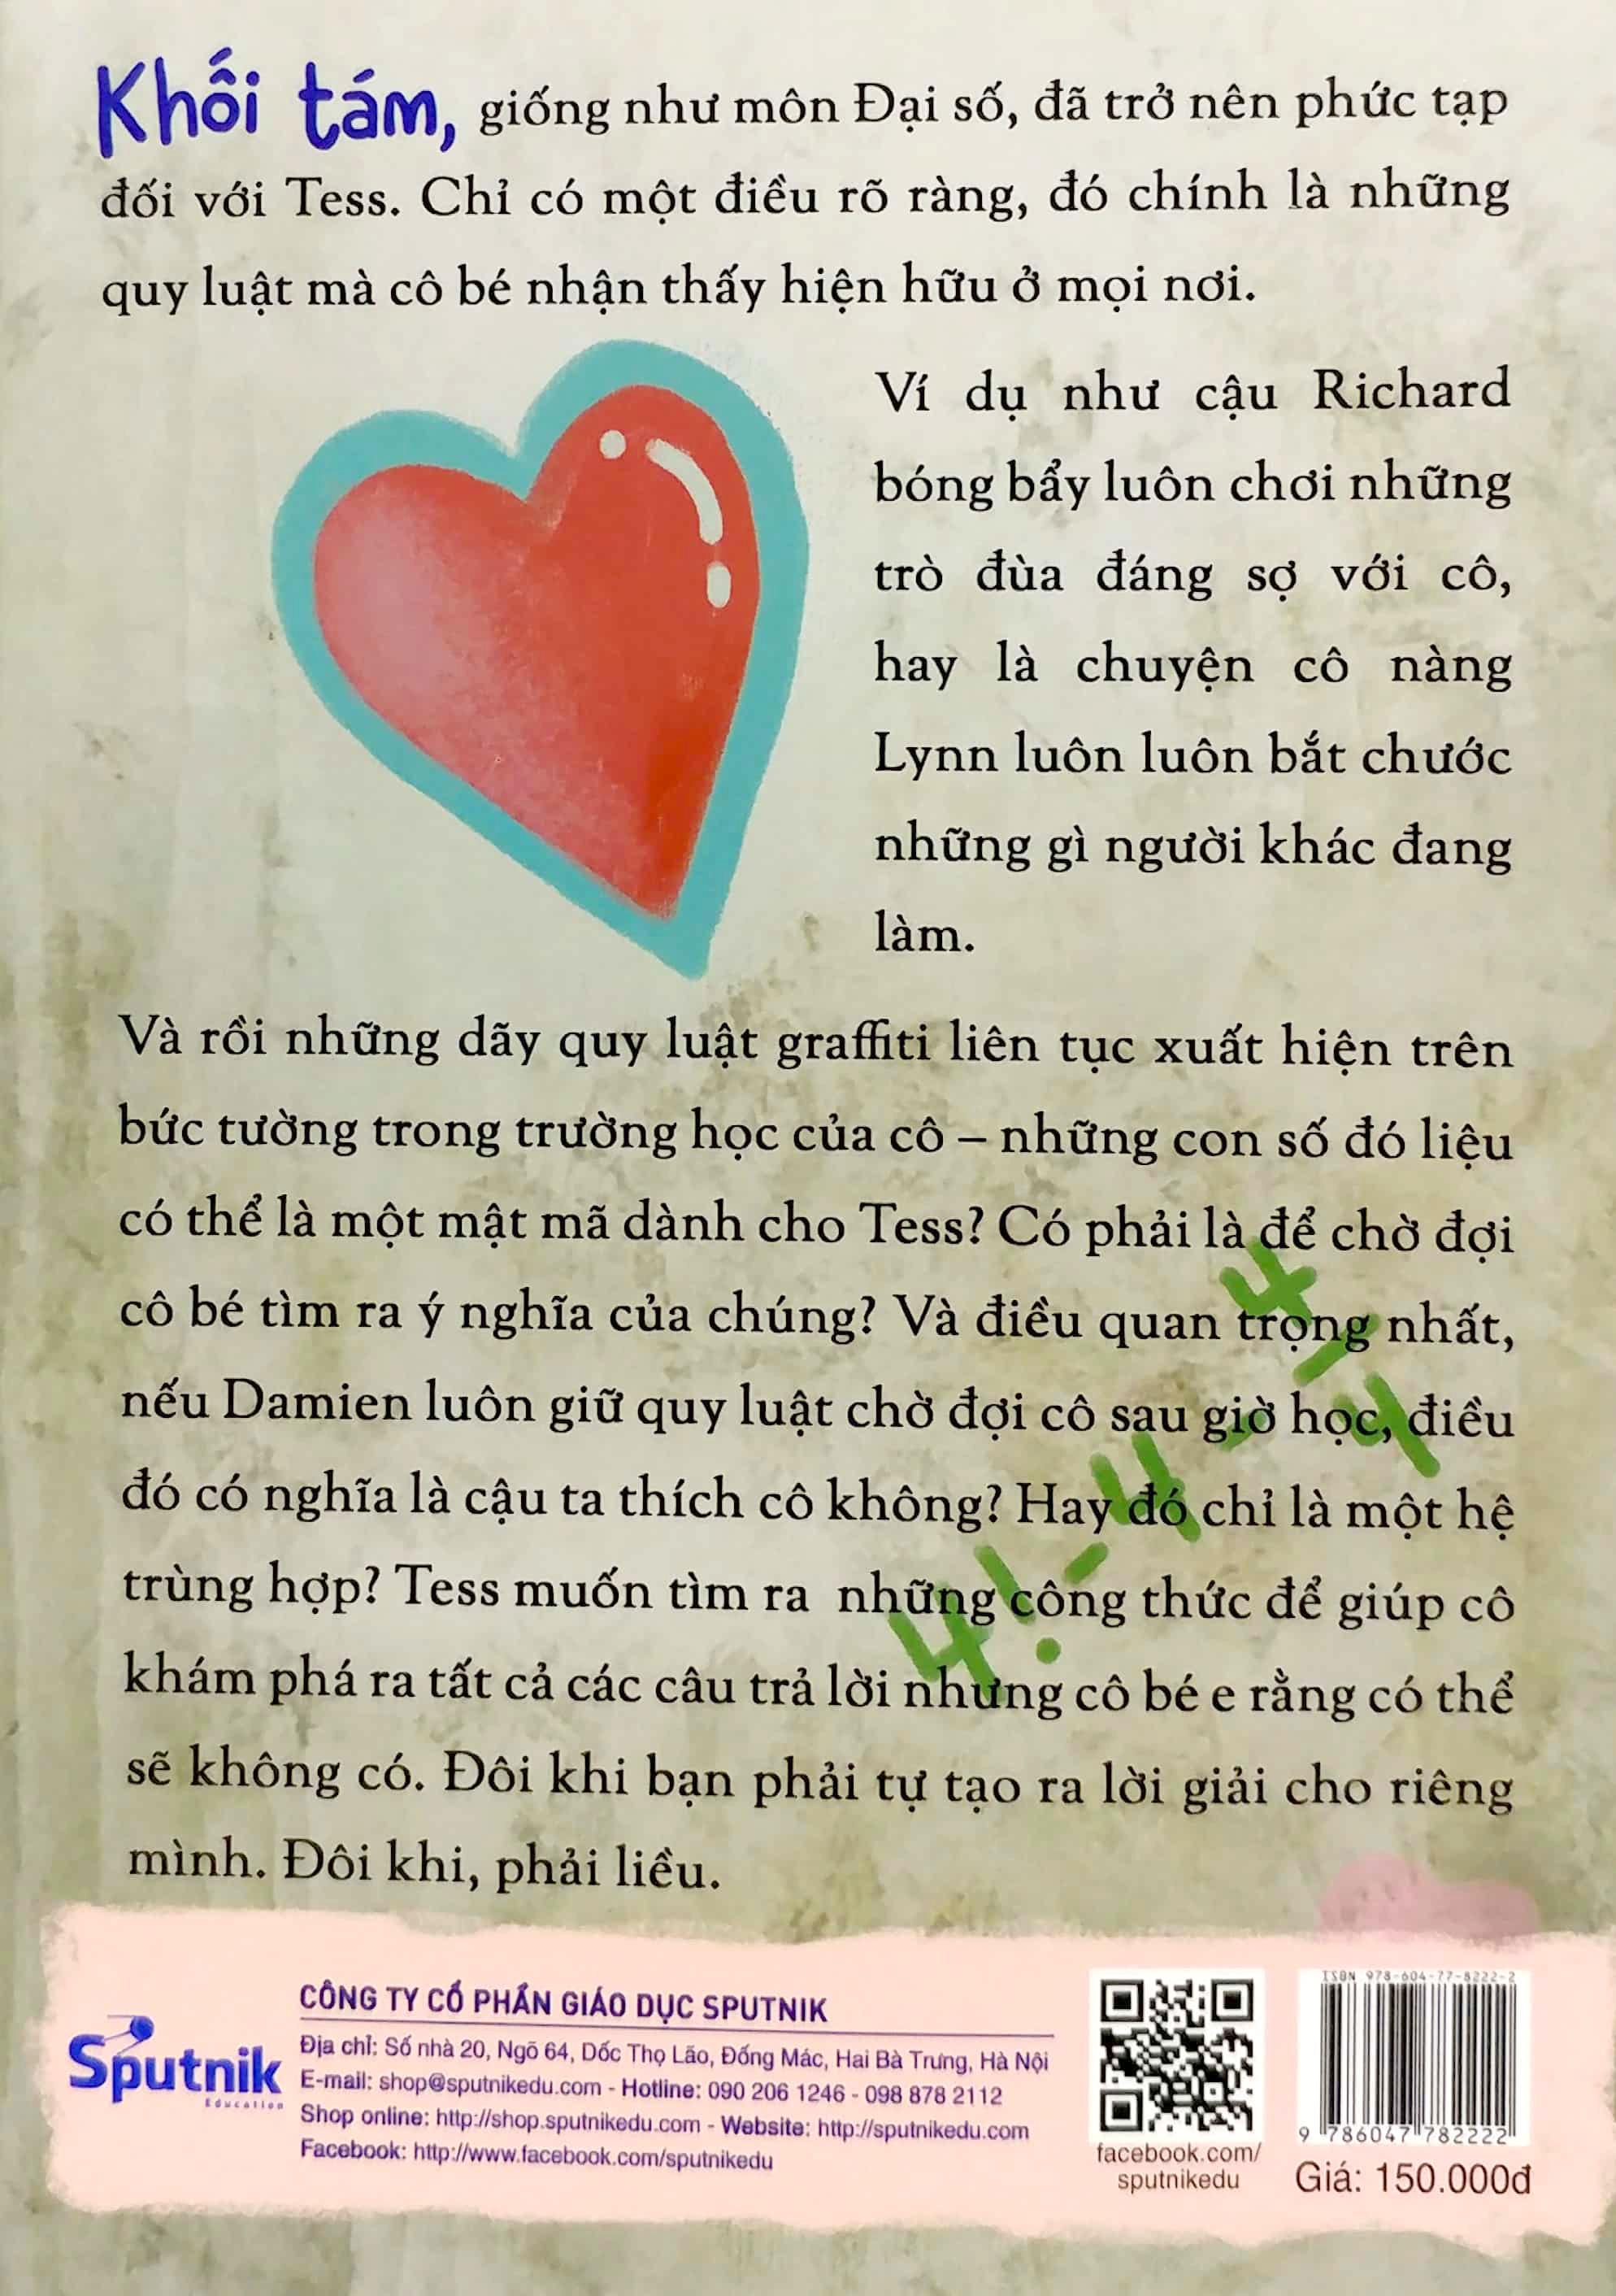 Khối tám, giống như môn Đại số, đã trở nên phức tạp
đối với Tess. Chỉ có một điều rõ ràng, đó chính là những
quy luật mà cô bé nhận thấy hiện hữu ở mọi nơi.
Ví dụ như cậu Richard
bóng bẩy luôn chơi những
trò đùa đáng sợ với cô,
hay là chuyện cô nàng
Lynn luôn luôn bắt chước
những gì người khác đang
làm.
Và rồi những dãy quy luật graffiti liên tục xuất hiện trên
bức tường trong trường học của cô – những con số đó liệu
có thể là một mật mã dành cho Tess? Có phải là để chờ đợi
cô bé tìm ra ý nghĩa của chúng? Và điều quan trọng nhất,
nếu Damien luôn giữ quy luật chờ đợi cô sau giờ học, điều
đó có nghĩa là cậu ta thích cô không? Hay đó chỉ là một hệ
trùng hợp? Tess muốn tìm ra những công thức để giúp cô
khám phá ra tất cả các câu trả lời nhưng cô bé e rằng có thể
sẽ không có. Đôi khi bạn phải tự tạo ra lời giải cho riêng
mình. Đôi khi, phải liều.
4!-4-4-4
Sputnik
Education
CÔNG TY CỔ PHẦN GIÁO DỤC SPUTNIK
Địa chỉ: Số nhà 20, Ngõ 64, Dốc Thọ Lão, Đống Mác, Hai Bà Trưng, Hà Nội
E-mail: shop@sputnikedu.com - Hotline: 090 206 1246 - 098 878 2112
Shop online: http://shop.sputnikedu.com - Website: http://sputnikedu.com
Facebook: http://www.facebook.com/sputnikedu
facebook.com/
sputnikedu
ISBN 978-604-77-8222-2
9 786047 782222
Giá: 150.000đ